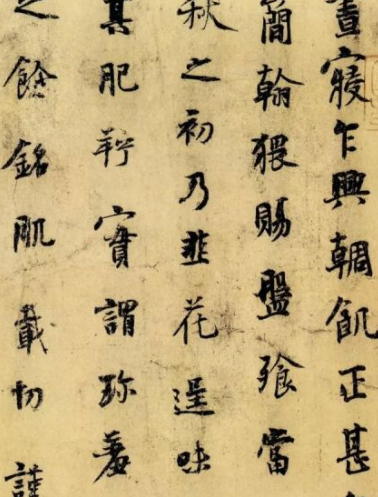 晝寢乍興輖飢正甚
簡翰猥賜盤飧當
秋之初乃韭花逞味
其肥羜實謂珍羞
之餘銘肌載切謹